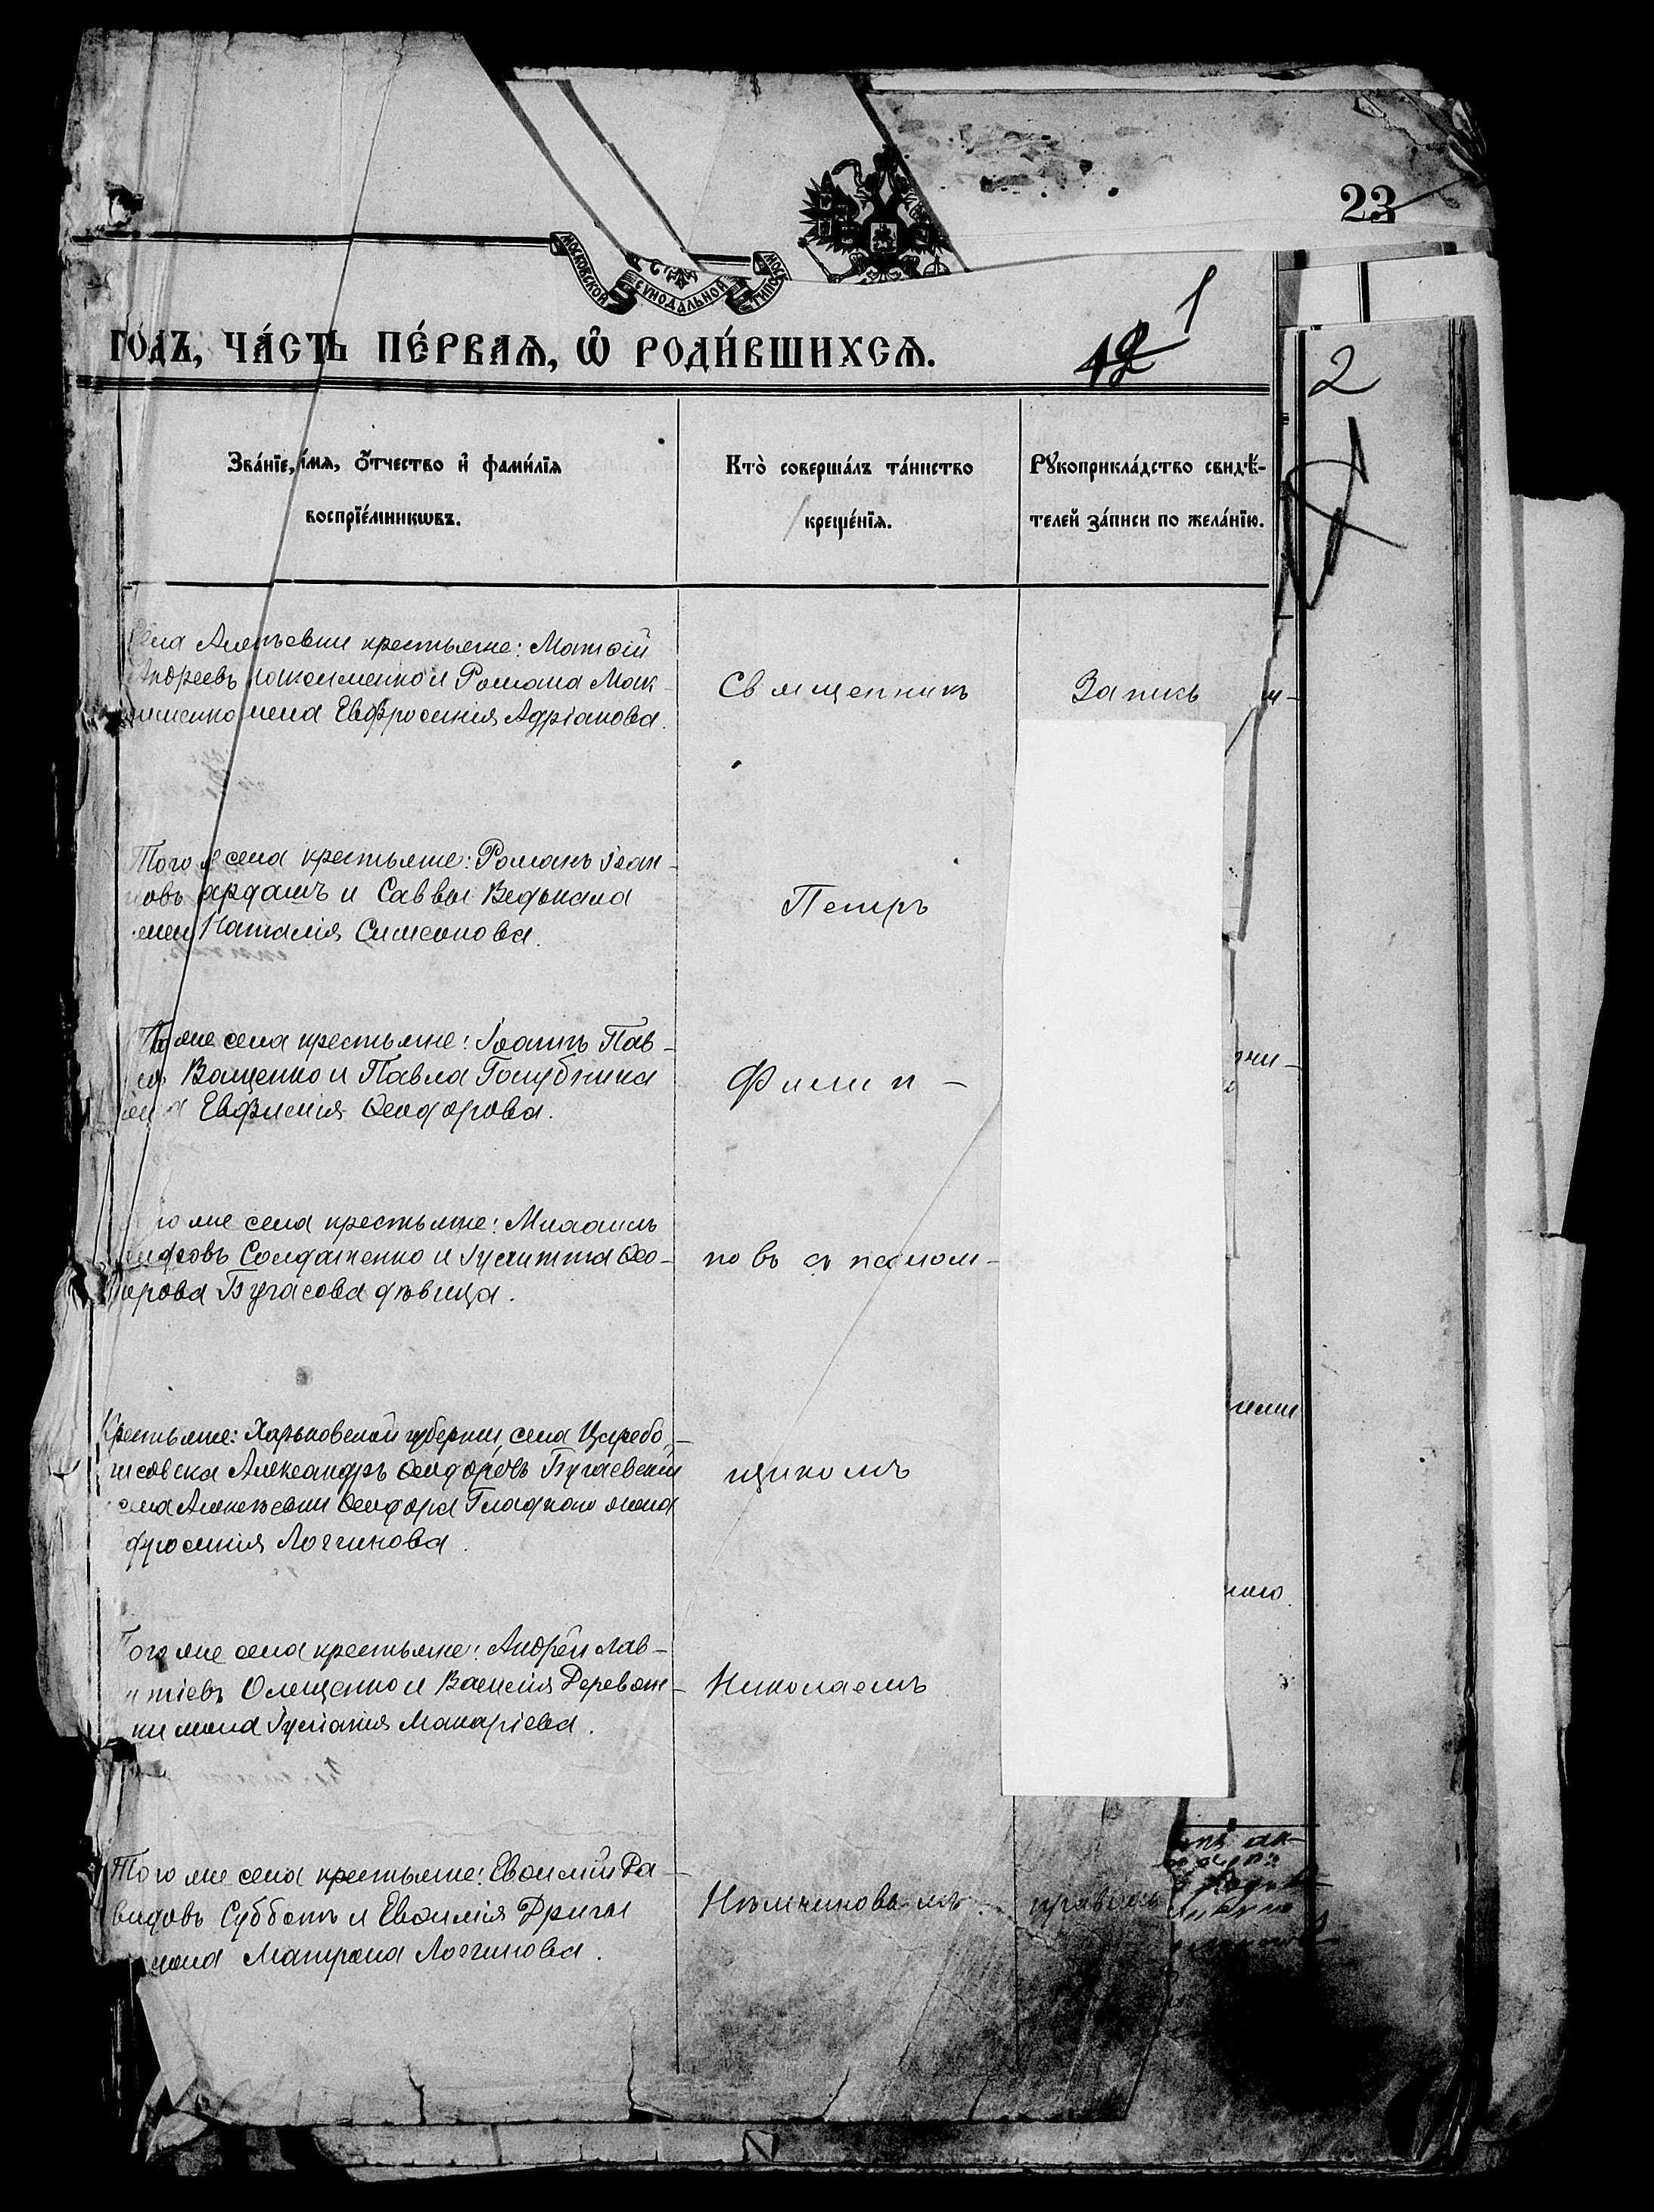 23
МОСКОВСКОЙ СѴНОДАЛЬНОЙ ТИПО
1
12
2
ГОДЪ, ЧА́СТЬ ПЕ́РВАѦ, Ѡ҆ РОДИ́ВШИХСѦ.
Зва́нїе, и́мѧ, ѻ҆́тчество и҆ фами́лїѧ
воспрїе́мникѡвъ.
Кто̀ соверша́лъ та́инство
креще́нїѧ.
Рꙋкоприкла́дство свидѣ́-
телей за́писи по жела́нїю.
крестьяне: Матѳій
Андреевъ и Романа Мак-
жена Евфросинія Адріанова.
Священникъ
Запись
Того села крестьяне: Романъ Іоан-
новъ и Саввы Ведькала
жена Наталія Симеонова.
Петръ
же села крестьяне: Іоаннъ Пав-
Ващенко и Павла Голубника
Евфимія Ѳеодорова.
Филип-
же села крестьяне: Михаилъ
Солдатенко и Іулитта Ѳео-
дорова Бугасова дѣвица.
повъ съ псалом-
Крестьяне: Харьковской губерніи, села Царебо-
рисовска Александръ Ѳеодоровъ Бугаевскій
Ѳеодора Гладкаго жена
фросинія Логгинова.
щикомъ
Того же села крестьяне: Андрей Лав-
рентіевъ Онищенко и Василія Деревян-
ки жена Іуліанія Макаріева.
Николаемъ
Того же села крестьяне: Евѳимій Да-
видовъ Субботъ и Евѳимія Дриги
жена Матрона Логгинова.
Нѣмчиновымъ.